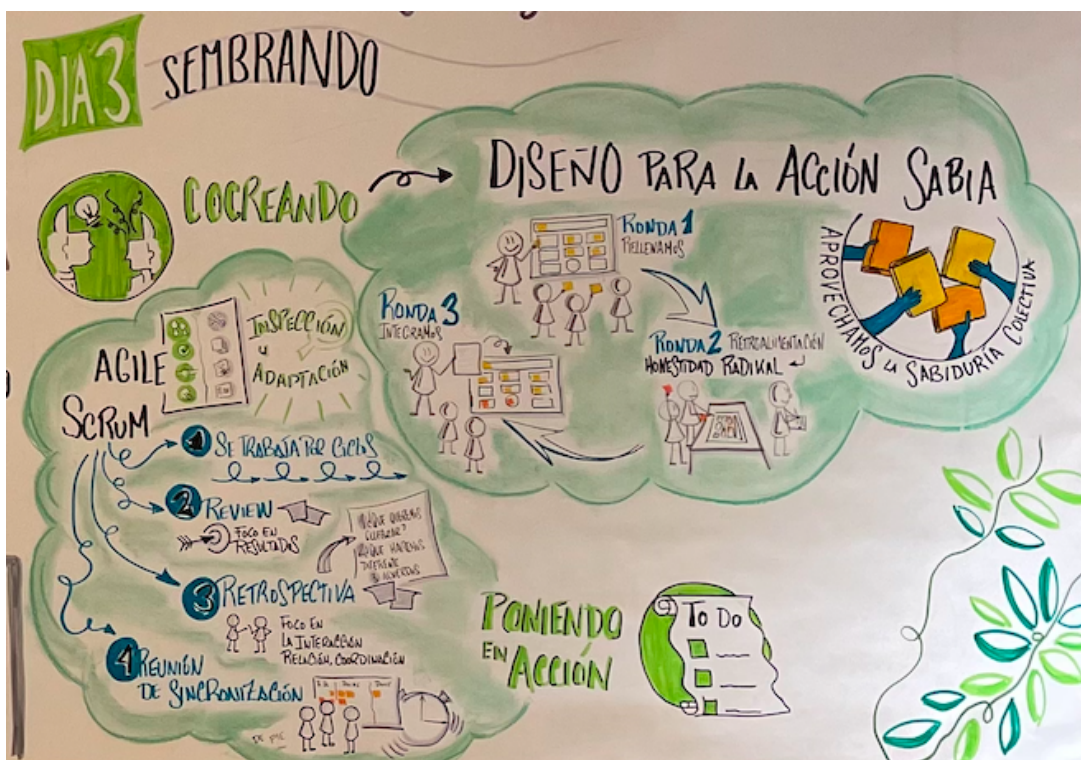 DIA 3
SEMBRANDO
COCREANDO
DISEÑO PARA LA ACCIÓN SABIA
RONDA 1
RELLENAMOS
RONDA 2 RETROALIMENTACIÓN
HONESTIDAD RADIKAL
RONDA 3
INTEGRAMOS
APROVECHAMOS LA SABIDURÍA COLECTIVA
AGILE
SCRUM
INSPECCIÓN
y
ADAPTACIÓN
1 SE TRABAJA POR CICLOS
2 REVIEW
FOCO EN
RESULTADOS
3 RETROSPECTIVA
¿QUE QUEREMOS
DIFERENTE
FOCO EN
LA INTERACCIÓN
RELACIÓN, COORDINACIÓN
4 REUNIÓN
DE SINCRONIZACIÓN
DE PIE
PONIENDO
EN ACCIÓN
TO DO